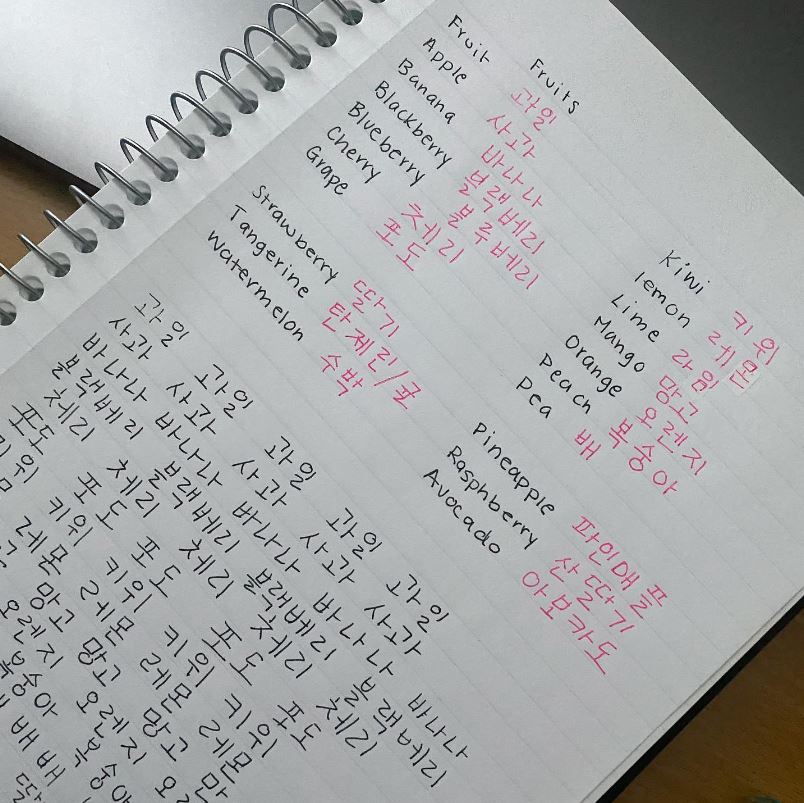 Fruits
Fruit 과일
Apple 사과
Banana 바나나
Blackberry 블랙베리
Blueberry 블루베리
Cherry 체리
Grape 포도
Kiwi 키위
lemon 레몬
Lime 라임
Mango 망고
Orange 오렌지
Peach 복숭아
Pea 배
Strawberry 딸기
Tangerine 탄제린/귤
Watermelon 수박
Pineapple 파인애플
Rasphberry 산딸기
Avocado 아보카도
과일 과일 과일 과일 과일
사과 사과 사과 사과 사과
바나나 바나나 바나나 바나나 바나나
블랙베리 블랙베리 블랙베리 블랙베리
체리 체리 체리 체리 체리
포도 포도 포도 포도 포도
키위 키위 키위 키위
레몬 레몬 레몬 레몬
망고 망고 망고
오렌지 오렌지
복숭아 복숭아
배 배